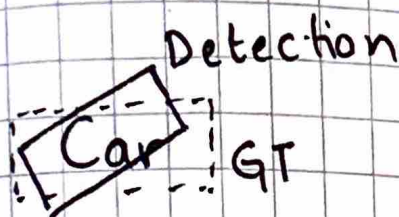 Detection
Car
GT